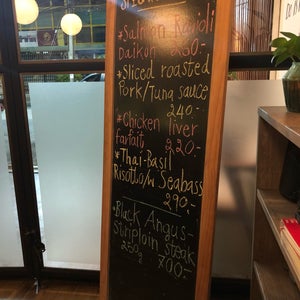 *Salmon Ravioli
Daikon 250.-
*Sliced roasted
Pork/Tuna sauce
240.-
*Chicken liver
farfait 220.-
*Thai-Basil
Risotto/w Seabass
290.-
*Black Angus-
Striploin steak
250g 700.-